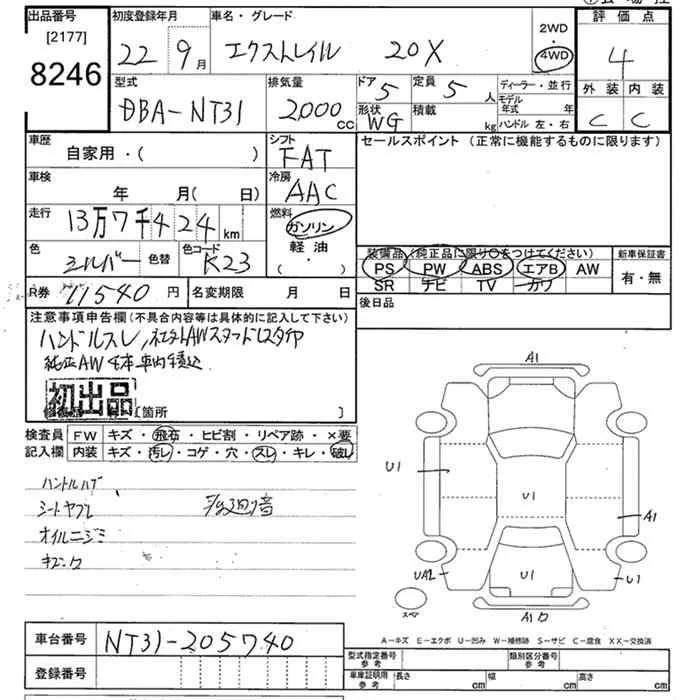 出品番号
[2177]
8246
初度登録年月
22 9月
車名・グレード
エクストレイル 20X
2WD
・
4WD
評価点
4
外装 内装
C C
型式
DBA-NT31
排気量
2,000 CC
ドア 5
定員 5 人
形状 WG
積載 kg
ディーラー・並行
モデル年式 年
ハンドル 左・右
車歴
自家用・( )
シフト
FAT
セールスポイント (正常に機能するものに限ります)
車検
年 月( 日)
冷房
AAC
走行
13万7千424km
燃料
ガソリン
軽油
( ・ )
色
シルバー 色替
色コード
K23
装備品 (純正品に限り○をつけてください)
PS PW ABS エアB AW
SR ナビ TV カワ
新車保証書
有・無
R券 11540 円
名変期限 月 日
後日品
注意事項申告欄(不具合内容等は具体的に記入して下さい)
ハンドルスレ,社外AWスタッドレスタイヤ
純正AW4本車内積込
初出品
箇所 ]
検査員 FW キズ・飛石・ヒビ割・リペア跡・×要
記入欄 内装 キズ・汚レ・コゲ・穴・スレ・キレ・破レ
シートヤブレ
オイルニジミ
A1
U1
U1
A1
UA2
U1
U1
A1
A-キズ E-エクボ U-凹み W-補修跡 S-サビ C-腐食 XX-交換済
車台番号 NT31-205740
登録番号
型式指定番号
参考
類別区分番号
参考
車庫証明用
参考
長さ cm
幅 cm
高さ cm